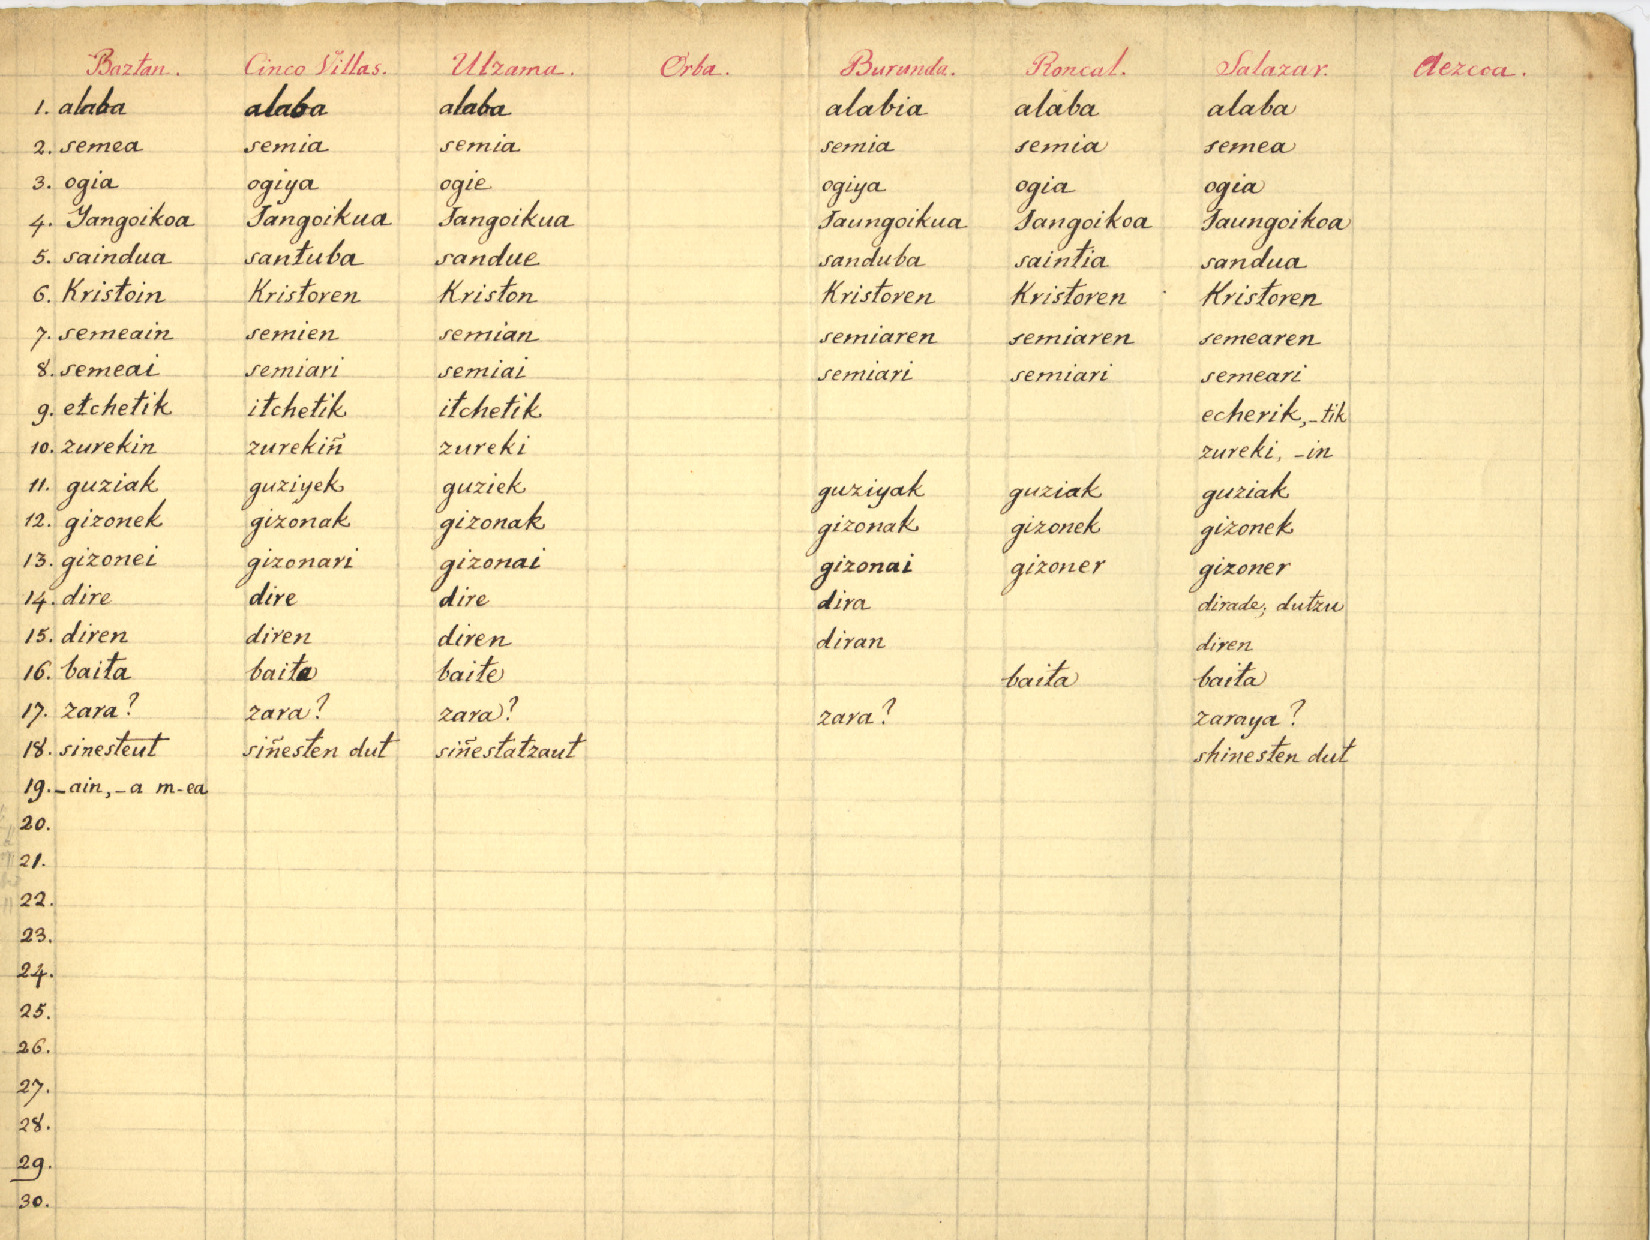 Baztan. Cinco Villas. Ulzama. Orba. Burunda. Roncal. Salazar. Aezcoa.
1. alaba alaba alaba alabia alaba alaba
2. semea semia semia semia semia semea
3. ogia ogiya ogie ogiya ogia ogia
4. Yangoikoa Jangoikua Jangoikua Jaungoikua Jangoikoa Jaungoikoa
5. saindua santuba sandue sanduba saintia sandua
6. Kristoin Kristoren Kriston Kristoren Kristoren Kristoren
7. semeain semien semian semiaren semiaren semearen
8. semeai semiari semiai semiari semiari semeari
9. etchetik itchetik itchetik echerik, -tik
10. zurekin zurekiñ zureki zureki, -in
11. guziak guziyek guziek guziyak guziak guziak
12. gizonek gizonak gizonak gizonak gizonek gizonek
13. gizonei gizonari gizonai gizonai gizoner gizoner
14. dire dire dire dira dirade; dutzu
15. diren diren diren diran diren
16. baita baita baite baita baita
17. zara? zara? zara? zara? zaraya?
18. sinesteut siñesten dut siñestatzaut shinesten dut
19. -ain, -a m-ea
20.
21.
22.
23.
24.
25.
26.
27.
28.
29.
30.